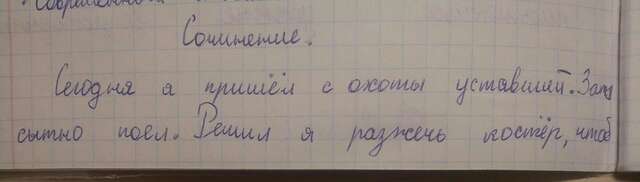 Сочинение.
Сегодня я пришёл с охоты уставший. Зато
сытно поел. Решил я разжечь костёр, чтоб